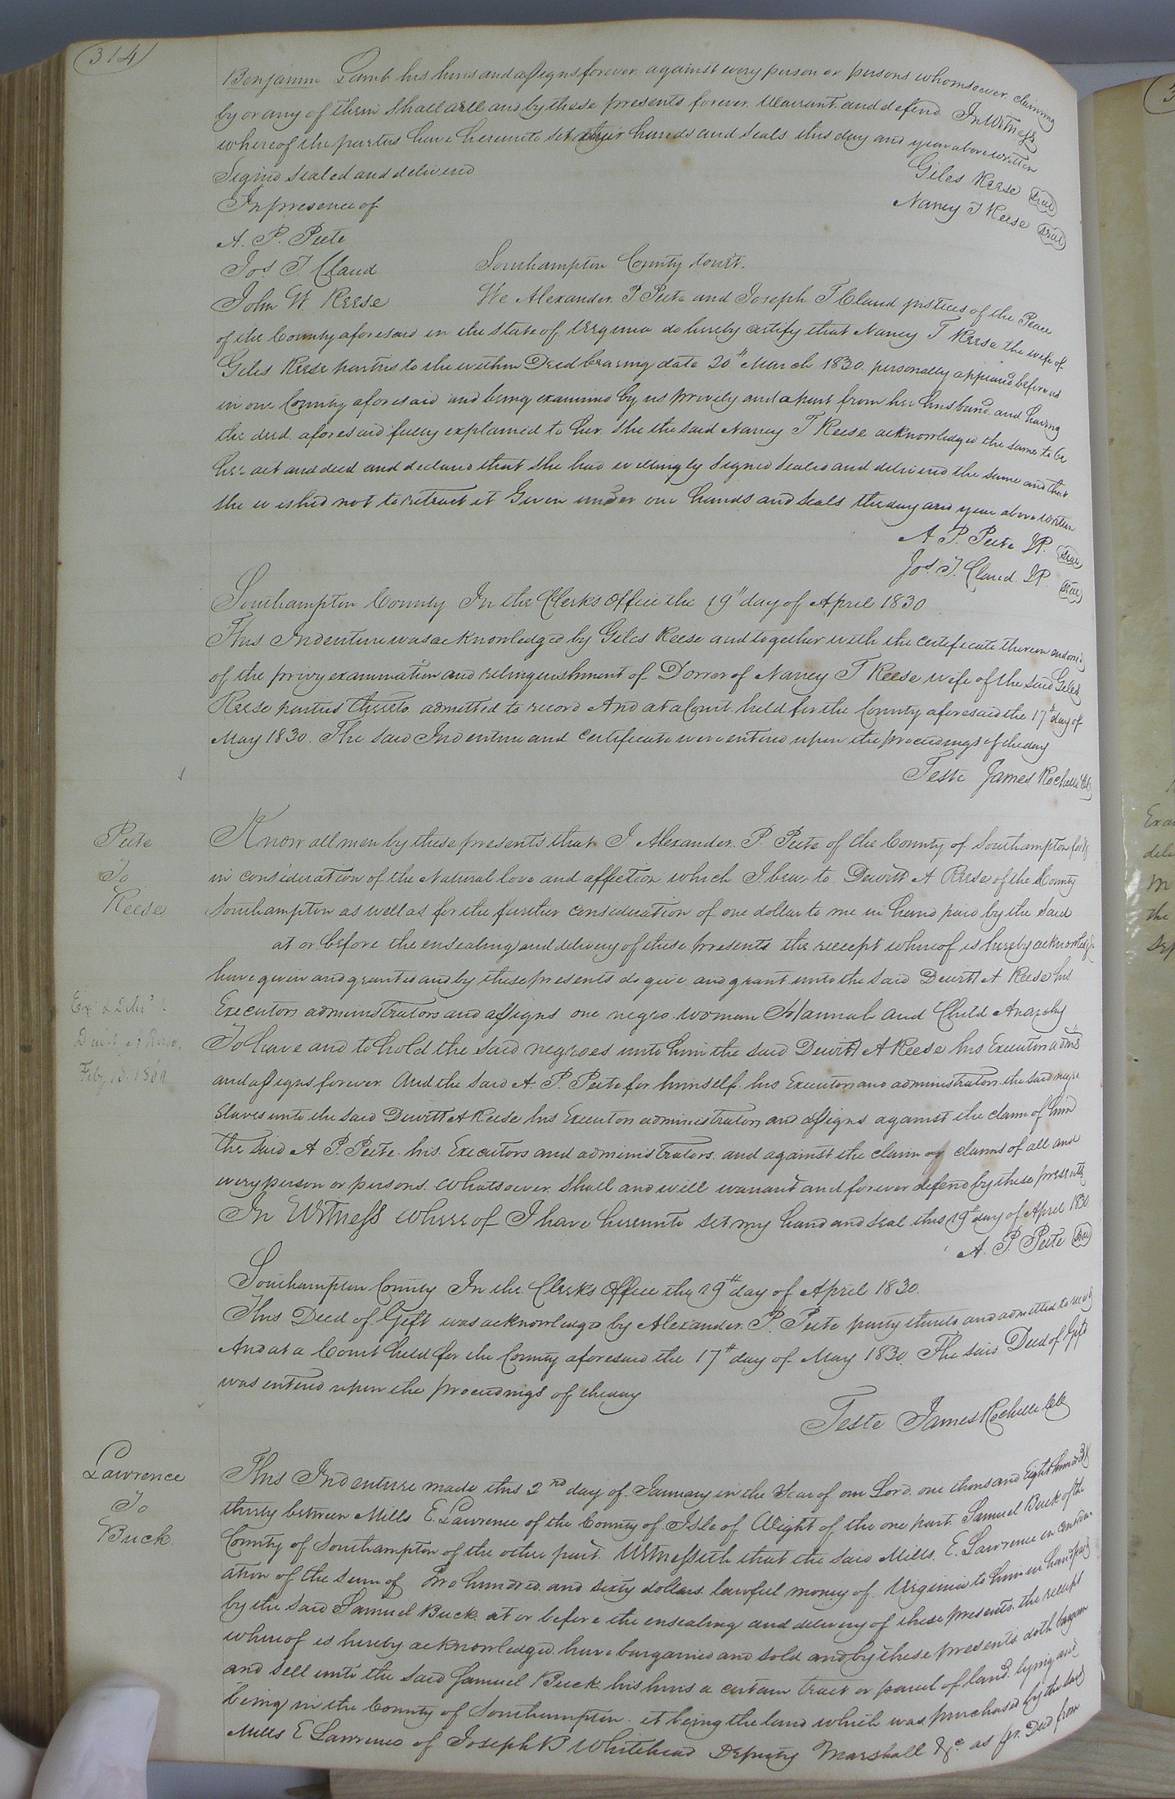 314
Benjamin Lamb his heirs and assigns forever against every person or persons whomsoever claiming
by or any of them shall will and by these presents forever Warrant and defend In Witness
whereof the parties have hereunto set their hands and seals this day and year above written
Signed sealed and delivered
Giles Reese seal
In presence of
Nancy T Reese seal
A. P. Peete
Jos T Claud
Southampton County Court.
John W Reese
We Alexander P Peete and Joseph T Claud justices of the Peace
of the County aforesaid in the State of Virginia do hereby certify that Nancy T Reese the wife of
Giles Reese parties to the within Deed bearing date 20th March 1830 personally appeared before us
in our County aforesaid and being examined by us privily and apart from her husband and having
the deed aforesaid fully explained to her she the said Nancy T Reese acknowledged the same to be
her act and deed and declared that she had willingly signed sealed and delivered the same and that
she wished not to retract it Given under our hands and seals the day and year above written
A P. Peete JP. seal
Jos T. Claud JP seal
Southampton County In the Clerks Office the 19th day of April 1830
This Indenture was acknowledged by Giles Reese and together with the certificate thereon
of the privy examination and relinquishment of Dower of Nancy T Reese wife of the said Giles
Reese parties thereto admitted to record And at a Court held for the County aforesaid the 17th day of
May 1830. The said Indenture and certificate were entered upon the proceedings of the day
Teste James Rochelle Clk
Peete
To
Reese
Know all men by these presents that I Alexander. P. Peete of the County of Southampton for &
in consideration of the Natural love and affection which I bear to Dewitt A Reese of the County
Southampton as well as for the further consideration of one dollar to me in hand paid by the said
at or before the ensealing and delivery of these presents the receipt whereof is hereby acknowledged
have given and granted and by these presents do give and grant unto the said Dewitt A Reese his
Executors administrators and assigns one negro woman Hannah and Child Anarchy
To have and to hold the said negroes unto him the said Dewitt A Reese his Executors adms
and assigns forever And the said A. P. Peete for himself his Executors and administrators the said
Slaves unto the said Dewitt A Reese his Executors administrators and assigns against the claim of him
the said A P. Peete his Executors and administrators and against the claim or claims of all and
every person or persons whatsoever shall and will warrant and forever defend by these presents
In Witness whereof I have hereunto set my hand and seal this 19th day of April 1830
A. P. Peete seal
Southampton County In the Clerks Office the 19th day of April 1830.
This Deed of Gift was acknowledged by Alexander. P. Peete party thereto and admitted to record
And at a Court held for the County aforesaid the 17th day of May 1830. The said Deed of Gift
was entered upon the proceedings of the day
Teste James Rochelle Clk
Lawrence
To
Buck
This Indenture made this 2nd day of January in the Year of our Lord one thousand Eight hundred &
thirty between Mills E Lawrence of the County of Isle of Wight of the one part Samuel Buck of the
County of Southampton of the other part. Witnesseth that the said Mills E. Lawrence in consider-
ation of the sum of two hundred and sixty dollars lawful money of Virginia to him in hand paid
by the said Samuel Buck at or before the ensealing and delivery of these presents the receipt
whereof is hereby acknowledged have bargained and sold and by these presents doth bargain
and sell unto the said Samuel Buck his heirs a certain tract or parcel of land lying and
being in the County of Southampton it being the land which was purchased by the said
Mills E Lawrence of Joseph B Whitehead Deputy Marshall &c as pr. Deed from